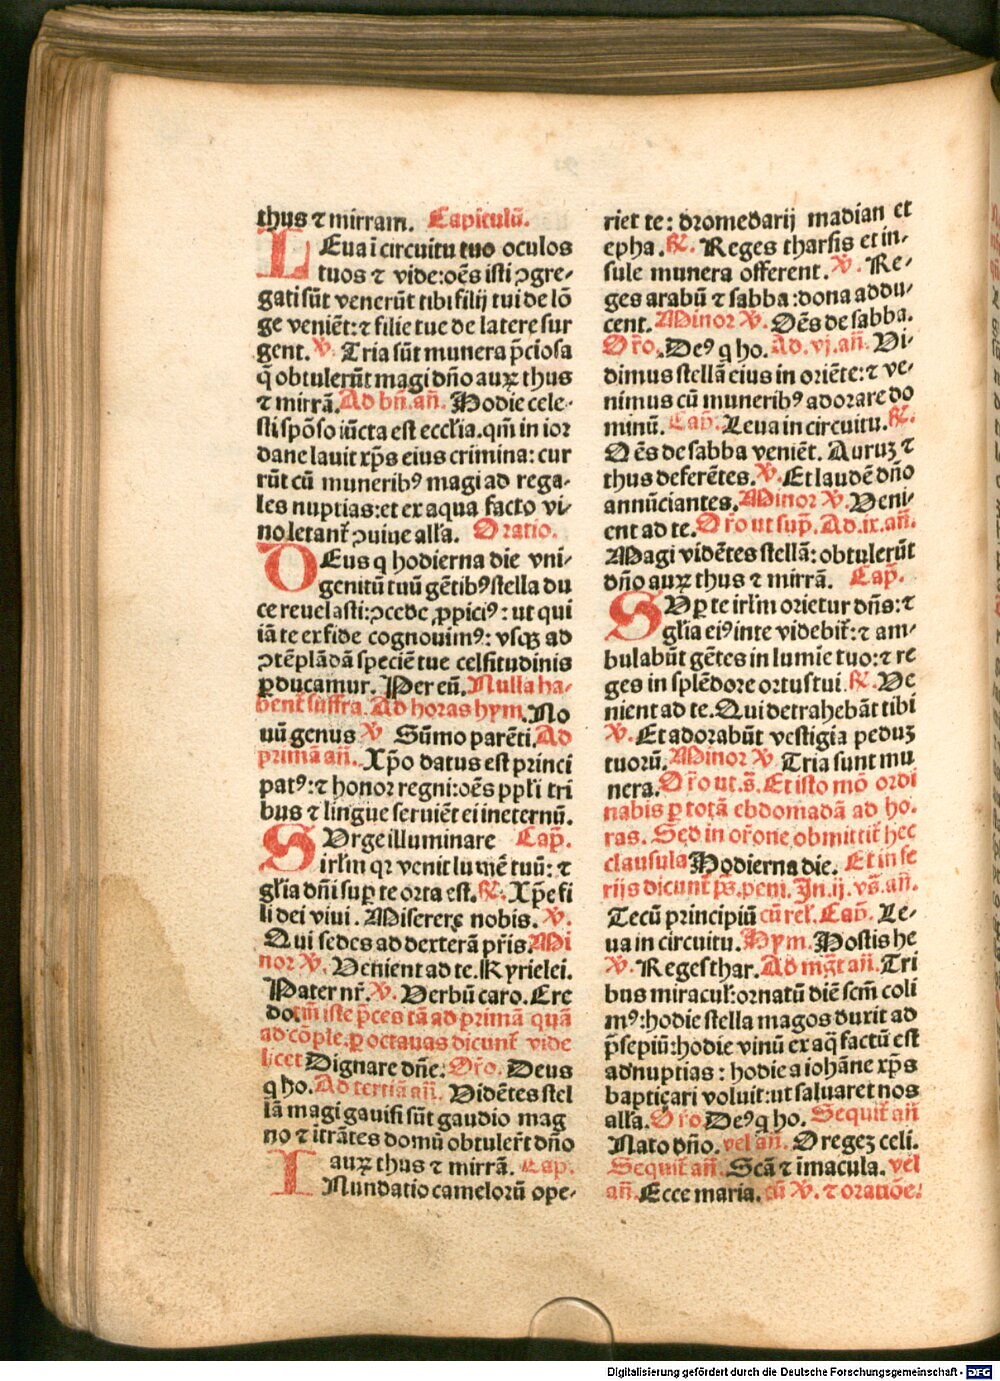 thus ⁊ mirram. Capitulū.
LEua ī circuitu tuo oculos
tuos ⁊ vide: oēs isti ꝯgre-
gati sūt venerūt tibi filij tui de lō
ge veniēt: ⁊ filie tue de latere sur
gent. ℣. Tria sūt munera p̄ciosa
q̄ obtulerūt magi dño auꝝ thus
⁊ mirrā. Ad bñ. añ. Hodie cele-
sti spōso iūcta est eccľia. qm̄ in ior
dane lauit xp̄s eius crimina: cur
rūt cū muneribꝰ magi ad rega-
les nuptias: et ex aqua facto vi-
no letant᷑ ꝯuiue alľa. Oratio.
DEus q hodierna die vni-
genitū tuū gētibꝰ stella du
ce reuelasti: ꝯcede ꝓpiciꝰ: ut qui
iā te ex fide cognouimꝰ: vsqꝫ ad
ꝯtēplādā speciē tue celsitudinis
ꝑducamur. Per eū. Nulla ha-
bent᷑ suffra. Ad horas hym. No
uū genus ℣ Sūmo parēti. Ad
primā añ. Xp̄o datus est princi
patꝰ: ⁊ honor regni: oēs ppľi tri
bus ⁊ lingue seruiēt ei ineternū.
SUrge illuminare Cap̄.
irľm qr venit lumē tuū: ⁊
gľia dñi suꝑ te orta est. ℟. Xp̄e fi
li dei viui. Miserere nobis. ℣.
Qui sedes ad dexterā pr̄is. Mi
nor ℣. Venient ad te. Kyrielei.
Pater nr̄. ℣. Verbū caro. Cre
do. tm̄ iste p̄ces tā ad primā quā
ad cōple. ꝑ octauas dicunt᷑ vide
licet Dignare dñe. Or̄o. Deus
q ho. Ad tertiā añ. Vidētes stel
lā magi gauisi sūt gaudio mag
no ⁊ itrātes domū obtuler̄t dño
auꝝ thus ⁊ mirrā. Cap.
INundatio camelorū ope-
riet te: dromedarij madian et
epha. ℟. Reges tharsis et in-
sule munera offerent. ℣. Re-
ges arabū ⁊ sabba: dona addu-
cent. Minor ℣. Oēs de sabba.
Or̄o. Deꝰ q ho. Ad. vj. añ. Vi-
dimus stellā eius in oriēte: ⁊ ve-
nimus cū muneribꝰ adorare do
minū. Cap̄. Leua in circuitu. ℟.
Oēs de sabba veniēt. Auruꝫ ⁊
thus deferētes. ℣. Et laudē dño
annūciantes. Minor ℣. Veni-
ent ad te. Or̄o ut sup̄. Ad. ix. añ.
Magi vidētes stellā: obtulerūt
dño auꝝ thus ⁊ mirrā. Cap̄.
SUꝑ te irľm orietur dñs: ⁊
gľia eiꝰ in te videbit᷑: ⁊ am-
bulabūt gētes in lumie tuo: ⁊ re
ges in splēdore ortus tui. ℟. Ve
nient ad te. Qui detrahebāt tibi
℣. Et adorabūt vestigia peduꝫ
tuorū. Minor ℣. Tria sunt mu
nera. Or̄o ut. s̄. Et isto mō ordi
nabis ꝑ totā ebdomadā ad ho-
ras. Sed in or̄one obmittit᷑ hec
clausula Hodierna die. Et in fe
rijs dicunt᷑ p̄s. peni. In. ij. vs̄. añ.
Tecū principiū cū rel̄. Cap̄. Le-
ua in circuitu. Hym. Hostis he
℣. Reges thar. Ad mḡt añ. Tri
bus miracul᷑: ornatū diē scm̄ coli
mꝰ: hodie stella magos duxit ad
p̄sepiū: hodie vinū ex aq̄ factū est
ad nuptias: hodie a iohāne xp̄s
baptiçari voluit: ut saluaret nos
alľa. Or̄o. Deꝰ q ho. Sequit᷑ añ
Nato dño. vel añ. O regeꝫ celi.
Sequit᷑ añ. Scā ⁊ īmacula. vel
añ. Ecce maria. cū ℣. ⁊ oratiōe.
Digitalisierung gefördert durch die Deutsche Forschungsgemeinschaft - DFG